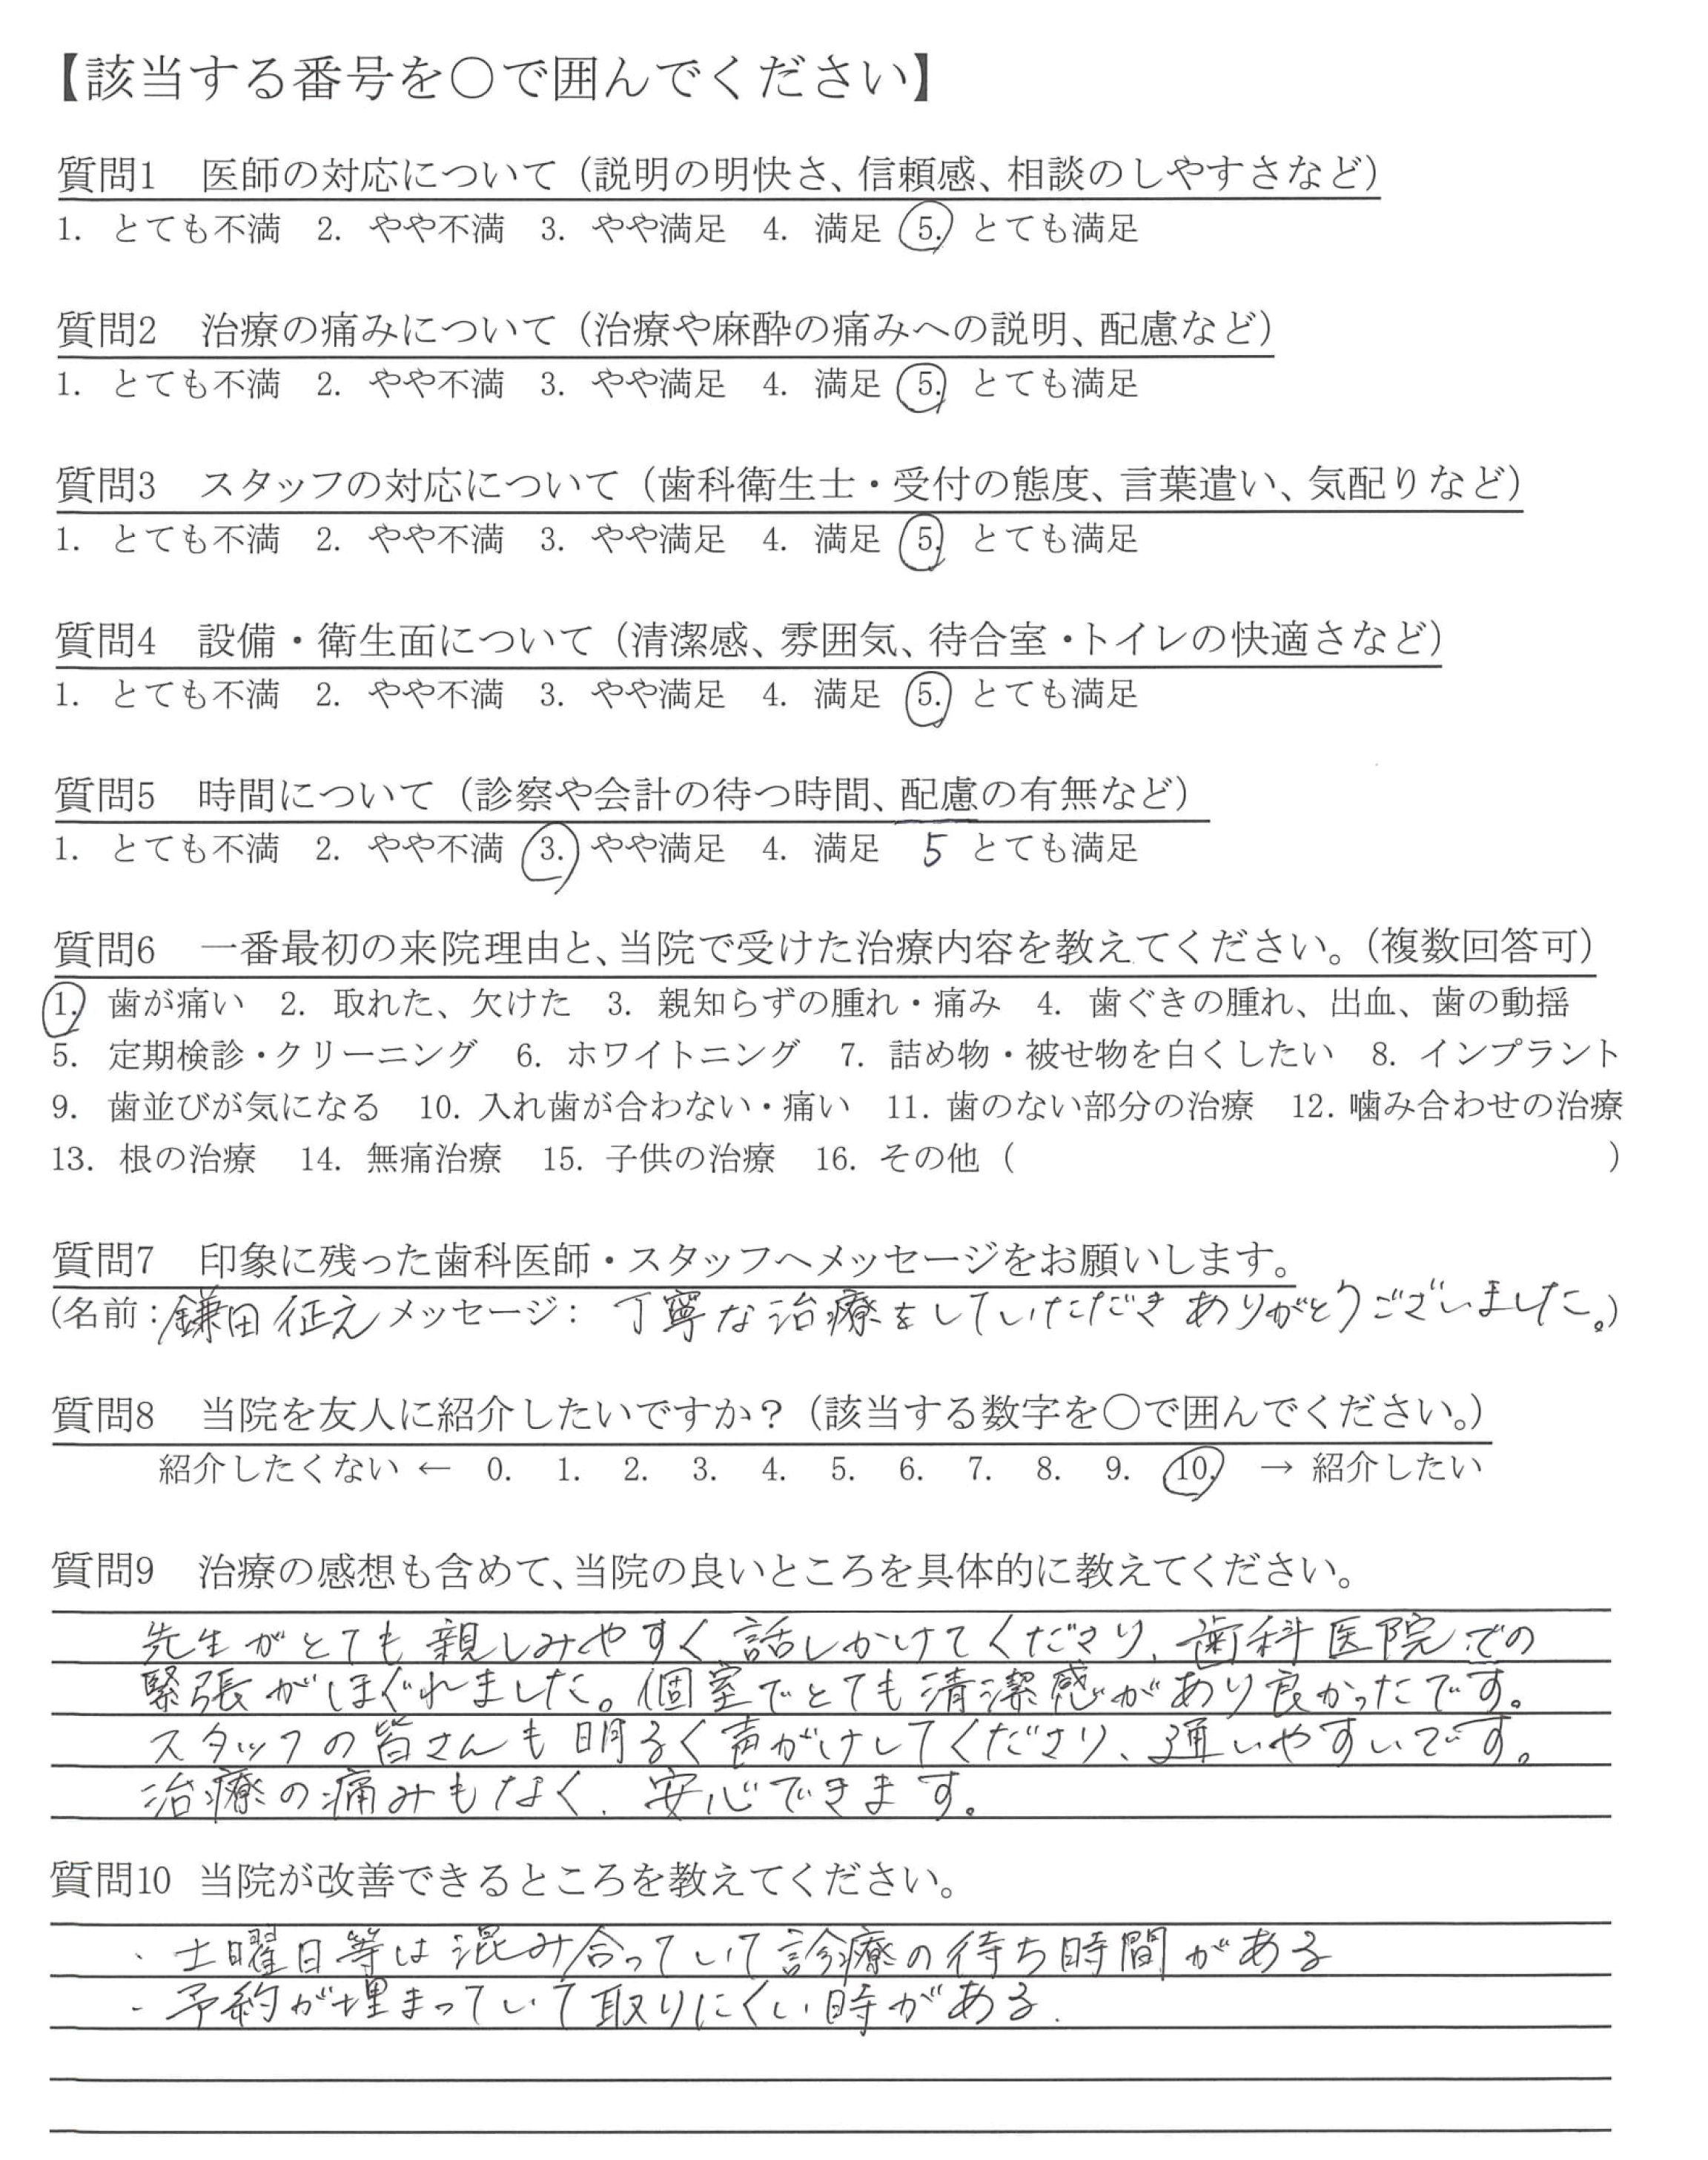 【該当する番号を〇で囲んでください】
質問1　医師の対応について（説明の明快さ、信頼感、相談のしやすさなど）
1. とても不満　2. やや不満　3. やや満足　4. 満足　5. とても満足
質問2　治療の痛みについて（治療や麻酔の痛みへの説明、配慮など）
1. とても不満　2. やや不満　3. やや満足　4. 満足　5. とても満足
質問3　スタッフの対応について（歯科衛生士・受付の態度、言葉遣い、気配りなど）
1. とても不満　2. やや不満　3. やや満足　4. 満足　5. とても満足
質問4　設備・衛生面について（清潔感、雰囲気、待合室・トイレの快適さなど）
1. とても不満　2. やや不満　3. やや満足　4. 満足　5. とても満足
質問5　時間について（診察や会計の待つ時間、配慮の有無など）
1. とても不満　2. やや不満　3. やや満足　4. 満足　5 とても満足
質問6　一番最初の来院理由と、当院で受けた治療内容を教えてください。（複数回答可）
1. 歯が痛い　2. 取れた、欠けた　3. 親知らずの腫れ・痛み　4. 歯ぐきの腫れ、出血、歯の動揺
5. 定期検診・クリーニング　6. ホワイトニング　7. 詰め物・被せ物を白くしたい　8. インプラント
9. 歯並びが気になる　10. 入れ歯が合わない・痛い　11. 歯のない部分の治療　12. 噛み合わせの治療
13. 根の治療　14. 無痛治療　15. 子供の治療　16. その他（　　　　　　　　）
質問7　印象に残った歯科医師・スタッフへメッセージをお願いします。
（名前：鎌田 征之 メッセージ： 丁寧な治療をしていただきありがとうございました。）
質問8　当院を友人に紹介したいですか？（該当する数字を〇で囲んでください。）
紹介したくない ← 0. 1. 2. 3. 4. 5. 6. 7. 8. 9. 10. → 紹介したい
質問9　治療の感想も含めて、当院の良いところを具体的に教えてください。
先生がとても親しみやすく話しかけてくださり、歯科医院での
緊張がほぐれました。個室でとても清潔感があり良かったです。
スタッフの皆さんも明るく声がけしてくださり、通いやすいです。
治療の痛みもなく、安心できます。
質問10　当院が改善できるところを教えてください。
・土曜日等は混み合っていて診療の待ち時間がある
・予約が埋まっていて取りにくい時がある.